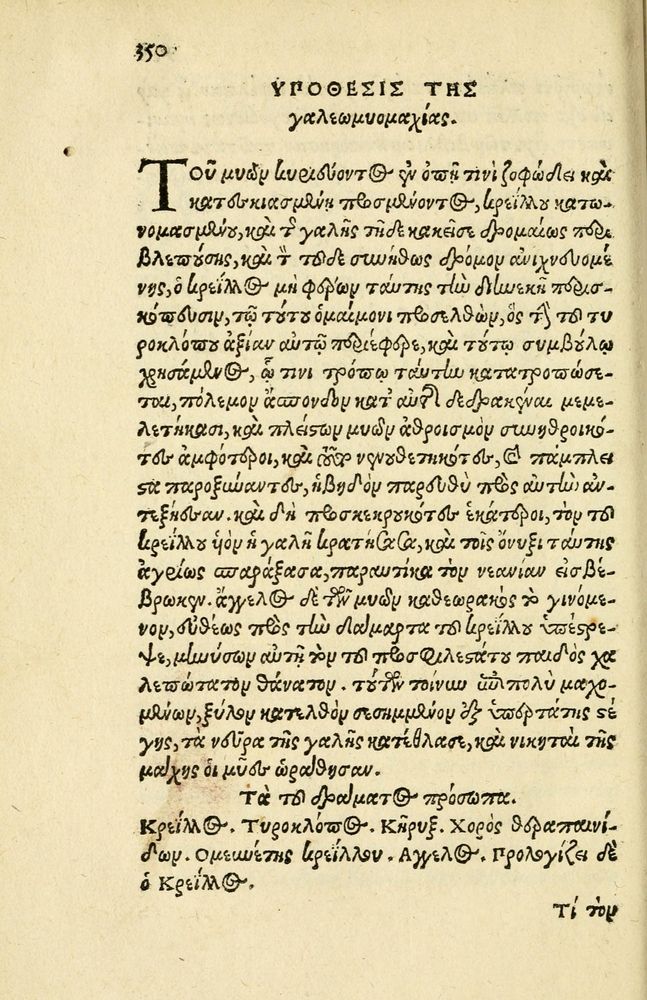 350
ΥΠΟΘΕΣΙΣ ΤΗΣ
γαλεωμυομαχίας.
Τοῦ μυῶν κυριεύοντος ἐν ὀπῇ τινὶ ζοφώδει καὶ
κατεσκιασμένῃ προσμένοντος, κρείλλου κατω-
νομασμένου, καὶ τῆς γαλῆς τῇδε κακεῖσε δρομαίως περι
βλεπούσης, καὶ τὸν τοῦδε συνήθως δρόμον ἀνιχνευομέ
νης, ὁ κρεῖλλος μὴ φέρων ταύτης τὴν διηνεκῆ περισ-
κόπευσιν, τῷ τούτου ὁμαίμονι προσελθὼν, ὃς τὴν τοῦ τυ
ροκλόπου ἀξίαν αὐτῷ περιέφερε, καὶ τούτῳ συμβούλῳ
χρησάμενος, ᾧ τινι τρόπῳ ταύτην κατατροπώσε-
ται, πόλεμον ἄσπονδον κατ' αὐτῆς δεδρακέναι μεμε-
λετήκασι, καὶ πλείστων μυῶν ἀθροισμὸν συνηθροικό-
τες ἀμφότεροι, καὶ νενουθετηκότες, καὶ πάμπλει
στα παροξύναντες, ἡβηδὸν παρευθὺ πρὸς αὐτὴν ἀν-
τεξῆσαν. καὶ δὴ προσκεκρουκότες ἑκάτεροι, τὸν τοῦ
κρείλλου υἱὸν ἡ γαλῆ κρατήσασα, καὶ τοῖς ὄνυξι ταύτης
ἀγρίως σπαράξασα, παραυτίκα τὸν νεανίαν εἰσβέ-
βρωκεν. ἄγγελος δὲ τῶν μυῶν καθεωρακὼς τὸ γινόμε-
νον, εὐθέως πρὸς τὴν δάμαρτα τοῦ κρείλλου ὑπέστρε-
ψε, μηνύσων αὐτῇ τὸν τοῦ προσφιλεστάτου παιδὸς χα
λεπώτατον θάνατον. τούτων τοίνυν ἐπιπολὺ μαχο-
μένων, ξύλον κατελθὸν σεσημμένον ἐξ ὑπερτάτης στέ
γης, τὰ νεῦρα τῆς γαλῆς κατέθλασε, καὶ νικηταὶ τῆς
μάχης οἱ μῦες ὡράθησαν.
Τὰ τοῦ δράματος πρόσωπα.
Κρεῖλλος. Τυροκλόπος. Κῆρυξ. Χορὸς θεραπαινί-
δων. Ομευνέτης κρείλλου. Αγγελος. Προλογίζει δὲ
ὁ Κρεῖλλος.
Τί τὸν